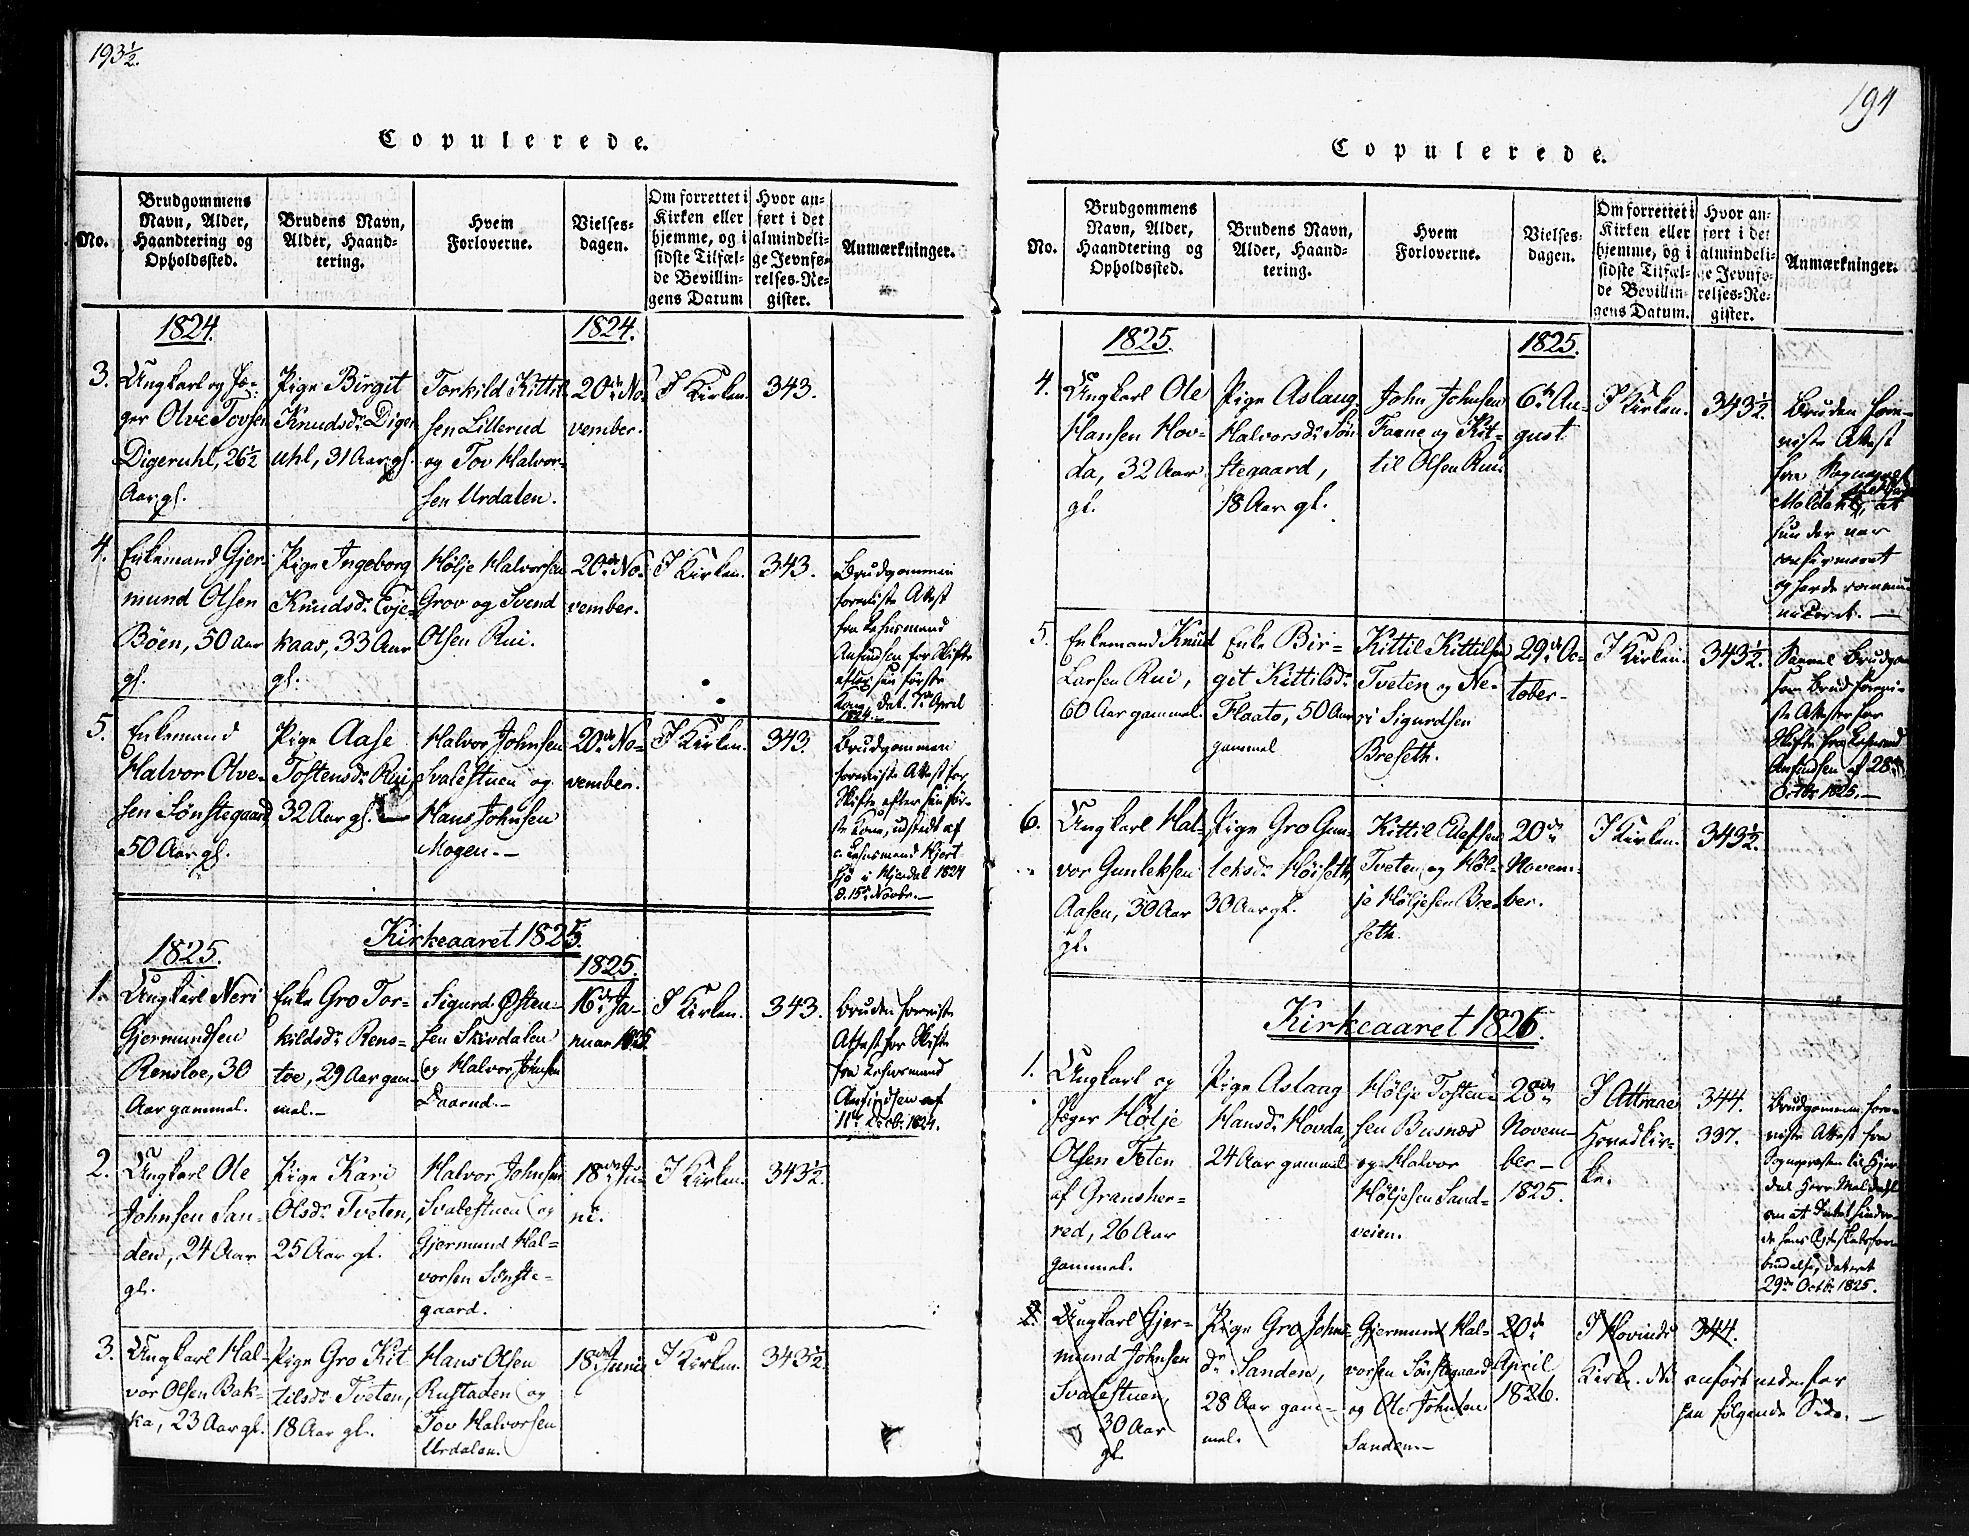 193½.
Copulerede.
No.
Brudgommens
Navn, Alder,
Haandtering og
Opholdssted.
Brudens Navn,
Alder, Haand-
tering.
Hvem
Forloverne.
Vielses-
dagen.
Om forrettet i
Kirken eller
hjemme, og i
sidste Tilfæl-
de Bevillin-
gens Datum
Hvor an-
ført i det
almindeli-
ge Jevnfø-
relses-Re-
gister.
Anmærkninger.
1824.
1824.
3.
Ungkarl og Jæ-
ger Olve Tovsen
Digeruhl, 26½
Aar gl.
Pige Birgit
Knudsdr Diger
uhl, 31 Aar gl.
Torkild Kittil-
sen Lillerud
og Tov Halvor-
sen Urdalen.
20de No-
vember.
I Kirken.
343.
4.
Enkemand Gjer-
mund Olsen
Böen, 50 Aar
gl.
Pige Ingeborg
Knudsdr Evje-
kaas, 33 Aar
gl.
Hølje Halvorsen
Grov og Svend
Olsen Rui.
20de No-
vember.
I Kirken.
343.
Brudgommen
foreviste Attest
fra Lehnsmand
Anfindsen for Skifte
efter sin første
Kone, dat. 7de April
1824.
5.
Enkemand
Halvor Olve-
sen Sønstegaard,
50 Aar gl.
Pige Aase
Tostensdr Rui,
32 Aar gl.
Halvor Johnsen
Svalestuen og
Hans Johnsen
Mogen.
20de No-
vember.
I Kirken.
343.
Brudgommen
foreviste Attest for
Skifte efter sin før-
ste Kone, udstædt af
Lehnsmand Hjort
sø i Hjerdal 1824
d. 15de Novbr.
Kirkeaaret 1825.
1825.
1825.
1.
Ungkarl Neri
Gjermundsen
Rensloe, 30
Aar gammel.
Enke Gro Tor-
kildsdr Rens-
toe, 29 Aar gam-
mel.
Sigurd Østen-
sen Skirdalen
og Halvor Johnsen
Daarud.
16de Ja-
nuar 1825.
I Kirken.
343.
Bruden foreviste
Attest for Skifte
fra Lehnsmand
Anfindsen af
11te Decbr 1824.
2.
Ungkarl Ole
Johnsen San-
den, 24 Aar
gl.
Pige Kari
Olsdr Tveten,
25 Aar gl.
Halvor Johnsen
Svalestuen og
Gjermund Hal-
vorsen Sønste-
gaard.
18de Ju-
ni.
I Kirken.
343½.
3.
Ungkarl Hal-
vor Olsen Bak-
ka, 23 Aar gl.
Pige Gro Kit
tilsdr Tveten,
18 Aar gl.
Hans Olsen
Rustaden og
Tov Halvorsen
Urdalen.
18de Juni
I Kirken.
343½.
194
Copulerede.
No.
Brudgommens
Navn, Alder,
Haandtering og
Opholdssted.
Brudens Navn,
Alder, Haand-
tering.
Hvem
Forloverne.
Vielses-
dagen.
Om forrettet i
Kirken eller
hjemme, og i
sidste Tilfæl-
de Bevillin-
gens Datum.
Hvor an-
ført i det
almindeli-
ge Jevnfø-
relses-Re-
gister.
Anmærkninger.
1825.
1825.
4.
Ungkarl Ole
Hansen Hov-
da, 32 Aar
gl.
Pige Aslaug
Halvorsdr Søn
stegaard,
18 Aar gl.
John Johnsen
Faane og Kit-
til Olsen Rui.
6te Au-
gust.
I Kirken.
343½.
Bruden fore-
viste Attest
fra Sognepræst
Moldahl, at
hun der var
confirmeret
og havde commu
niceret.
5.
Enkemand Knut
Larsen Rui,
60 Aar gammel.
Enke Bir-
git Kittilsdr
Flaato, 50 Aar
gammel
Kittil Kittilsen
Tveten og Ne-
ri Sigurdsen
Breseth.
29de Oc-
tober.
I Kirken.
343½.
Saavel Brudgom
som Brud forevi-
ste Attester for
Skifte fra Lehnsmd
Anfindsen af 28de
Octbr 1825.
6.
Ungkarl Hal-
vor Gunleksen
Aasen, 30 Aar
gl.
Pige Gro Gun-
leksdr Høiseth,
30 Aar gl.
Kittil Olafsen
Tveten og Høl-
je Høljesen Bre-
seth.
20de
Novem-
ber.
I Kirken.
343½.
Kirkeaaret 1826.
1.
Ungkarl og
Jæger Hølje
Olsen Teten
af Gransher-
red, 26 Aar
gammel.
Pige Aslaag
Hansdr Hovda,
24 Aar gammel
Hølje Tosten-
sen Busnes
og Halvor
Høljesen Sand-
veien.
28de
Novem-
ber
1825.
I Attraae
Hovedkir-
ke.
344.
337.
Brudgommen fore-
viste Attest fra
Sognepræsten til Hjer
dal Herr Moldahl
om at Intet hindre-
de hans Egteskabsfor-
bindelse, dateret
29de Octbr 1825.
2.
Ungkarl Gjer-
mund Johnsen
Svalestuen,
30 Aar
gl.
Pige Gro Johns-
dr Sanden,
28 Aar gam-
mel.
Gjermund Hal-
vorsen Sønstegaard
og Ole Johnsen
Sanden.
20de
April
1826.
I Hovinds
Kirke.
344.
No anført nedenfor
paa følgende Side.